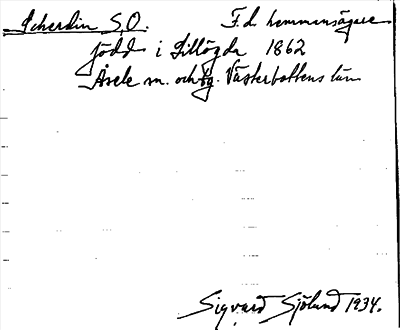 Scherdin S.O. F.d. hemmansägare
född i Lillögda 1862
Åsele sn. och tg. Västerbottens län
Sigvard Sjölund 1934.